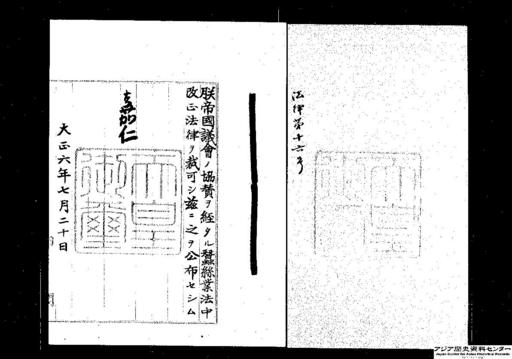 法律第十六号
朕帝國議會ノ協賛ヲ經タル蠶絲業法中
改正法律ヲ裁可シ茲ニ之ヲ公布セシム
嘉仁
天皇
御璽
大正六年七月二十日
アジア歴史資料センター
Japan Center for Asian Historical Records